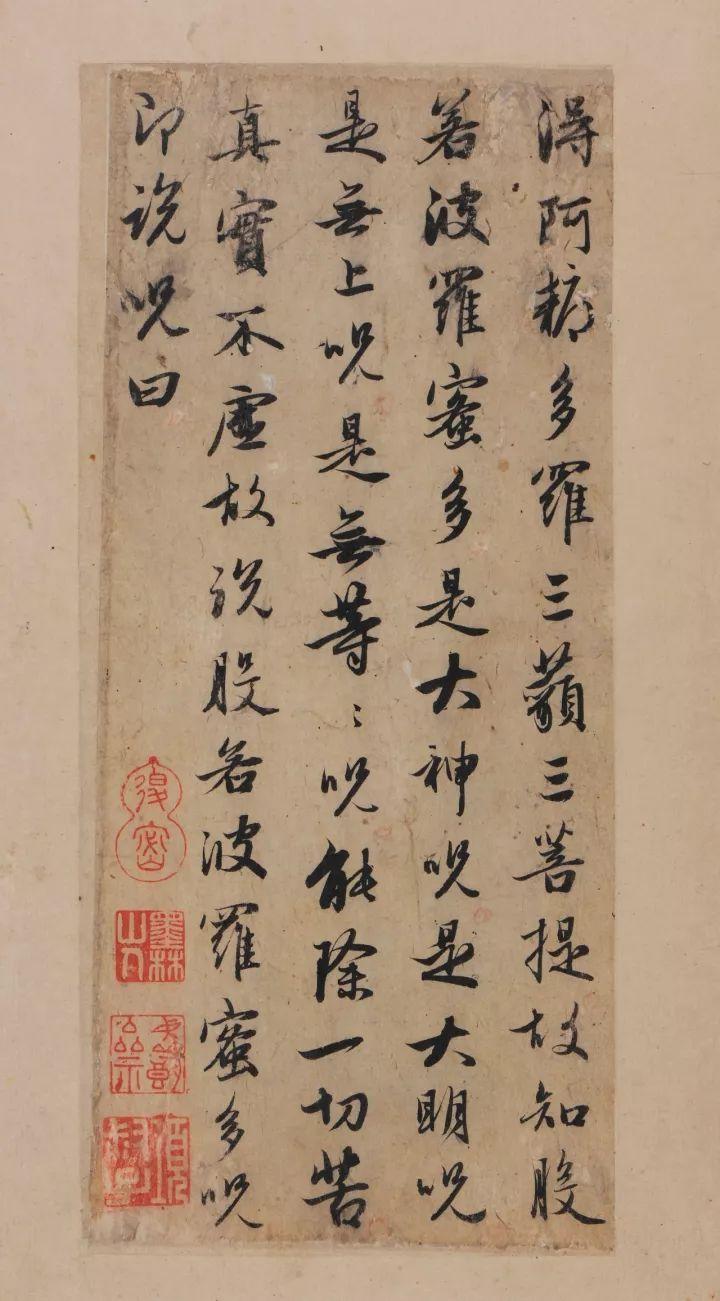 得阿耨多羅三藐三菩提故知般
若波羅蜜多是大神呪是大明呪
是無上呪是無等〻呪能除一切苦
真實不虛故說般若波羅蜜多呪
即說呪曰
退密
墨林山人
虛朗齋